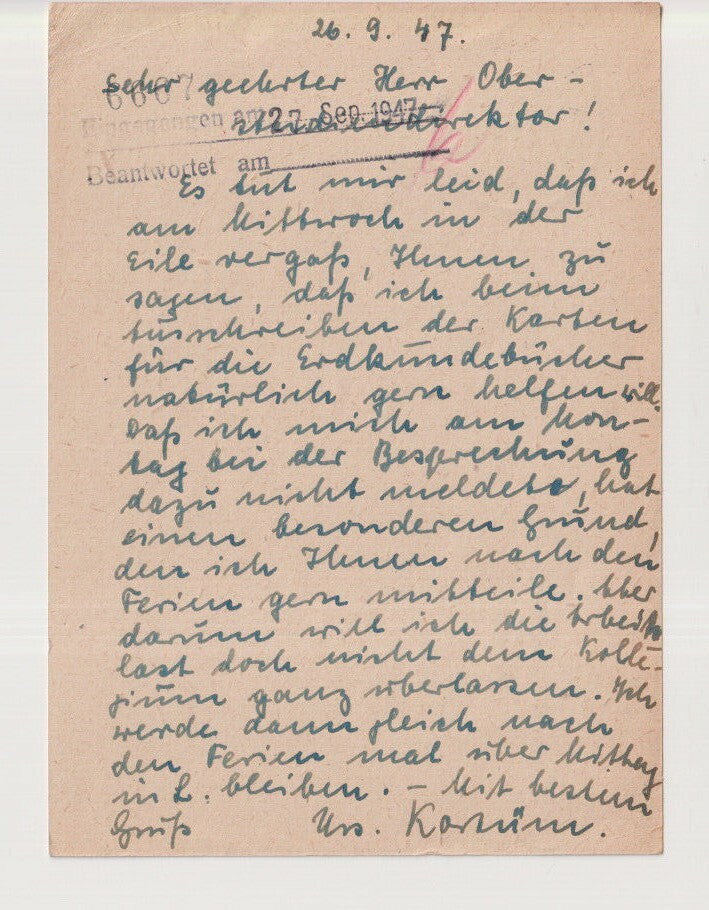 26. 9. 47.
Sehr geehrter Herr Ober-
6067
Eingegangen am 27. Sep. 1947
studiendirektor!
Beantwortet am
Es tut mir leid, daß ich
am Mittwoch in der
Eile vergaß, Ihnen zu
sagen, daß ich beim
Ausschreiben der Karten
für die Erdkundebücher
natürlich gern helfen will.
Daß ich mich am Mon-
tag bei der Besprechung
dazu nicht meldete, hat
einen besonderen Grund,
den ich Ihnen nach den
Ferien gern mitteile. Aber
darum will ich die Arbeits
last doch nicht dem Kolle-
gium ganz überlassen. Ich
werde dann gleich nach
den Ferien mal über Mittag
in L. bleiben. – Mit bestem
Gruß Urs.